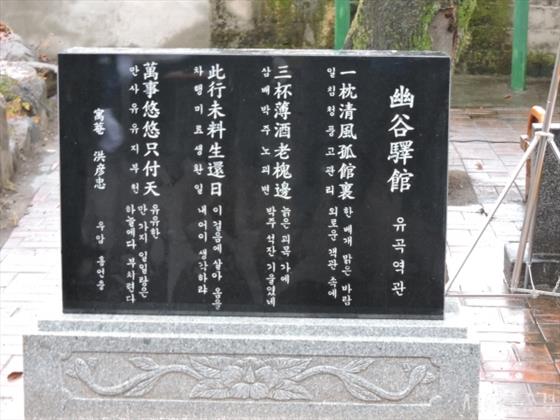 幽谷驛館 유곡역관
一枕清風孤館裏 한 베개 맑은 바람
일침청풍고관리 외로운 객관 속에
三杯薄酒老槐邊 늙은 괴목 가에
삼배박주노괴변 박주 석잔 기울였네
此行未料生還日 이 걸음에 살아 올 날을
차행미료생환일 내 어이 생각하랴
萬事悠悠只付天 유유한
만사유유지부천 만 가지 일일랑은
하늘에다 부치련다
寓菴 洪彦忠 우암 홍언충